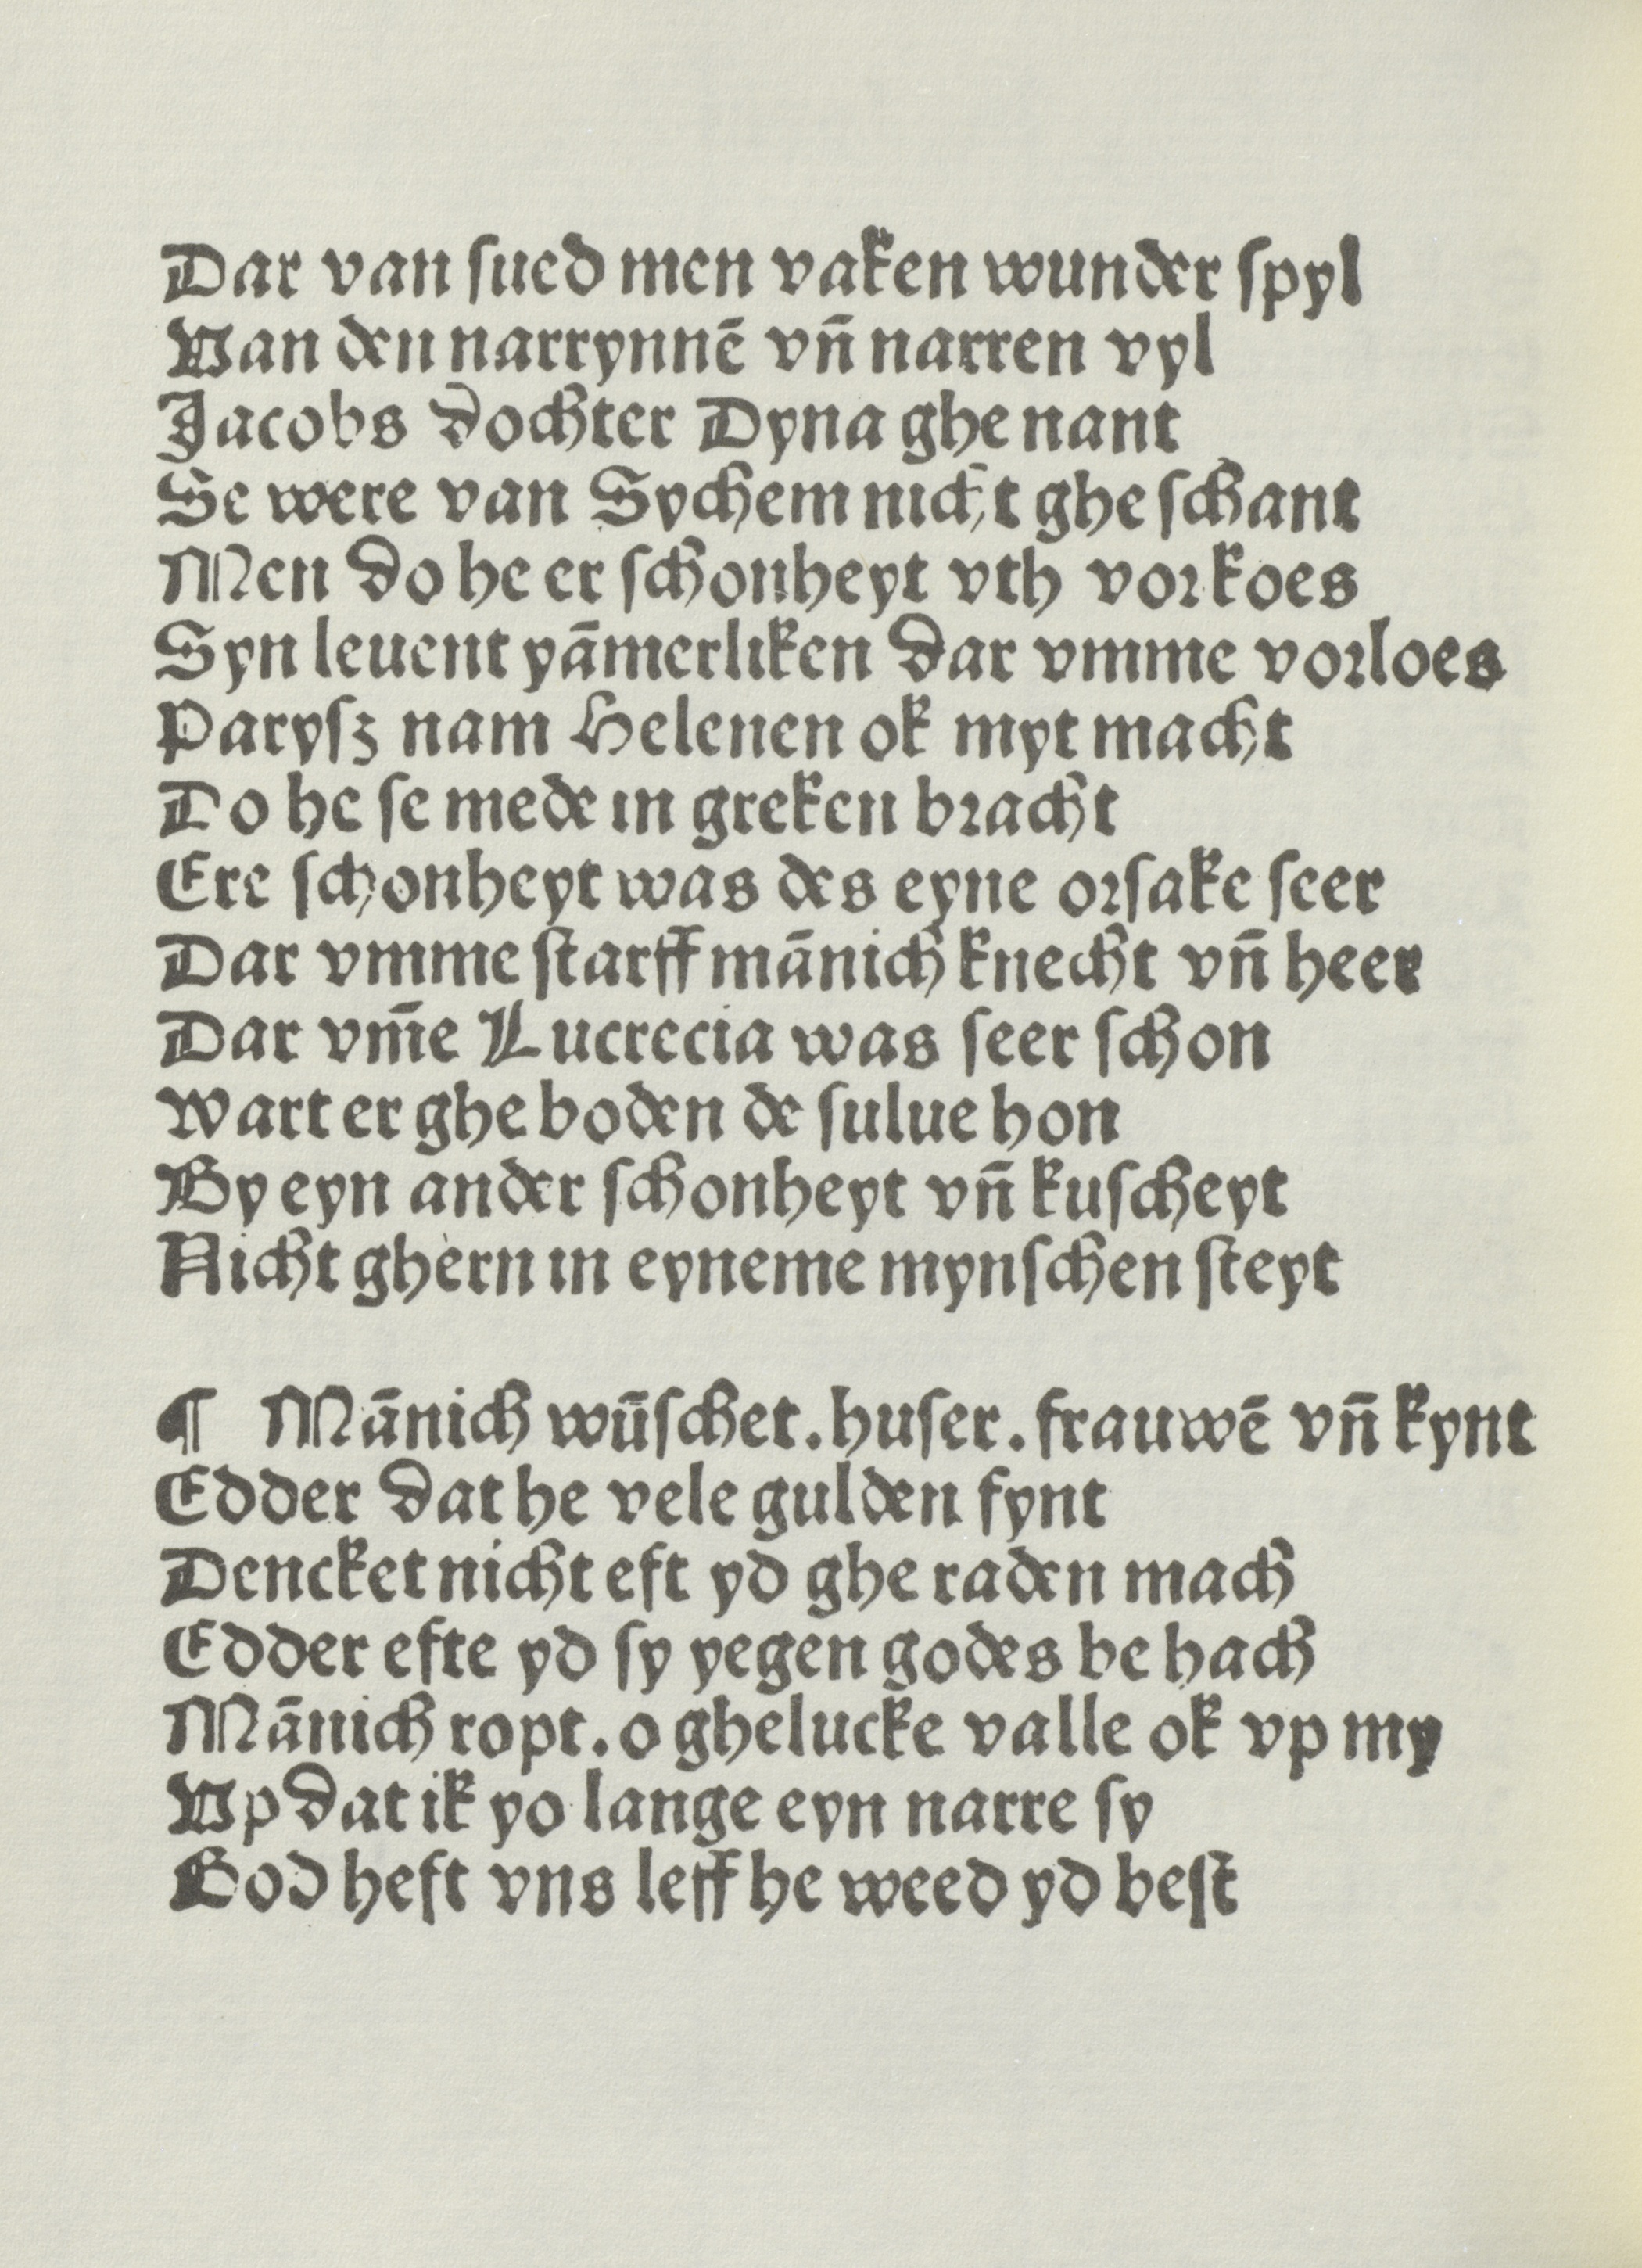 Dar van sued men vaken wunder spyl
Van den narrynnē vn̄ narren vyl
Jacobs dochter Dyna ghe nant
Se were van Sychem nicht ghe schant
Men do he er schonheyt vth vorkoes
Syn leuent yāmerliken dar vmme vorloes
Parysz nam Helenen ok myt macht
Do he se mede in greken bracht
Ere schonheyt was des eyne orsake seer
Dar vmme starff mānich knecht vn̄ heer
Dar vm̄e Lucrecia was seer schon
Wart er ghe boden de sulue hon
By eyn ander schonheyt vn̄ kuscheyt
Nicht ghern in eyneme mynschen steyt
¶ Mānich wūschet. huser. frauwē vn̄ kynt
Edder dat he vele gulden fynt
Dencket nicht eft yd ghe raden mach
Edder efte yd sy yegen godes be hach
Mānich ropt. o ghelucke valle ok vp my
Vp dat ik yo lange eyn narre sy
God heft vns leff he weed yd best